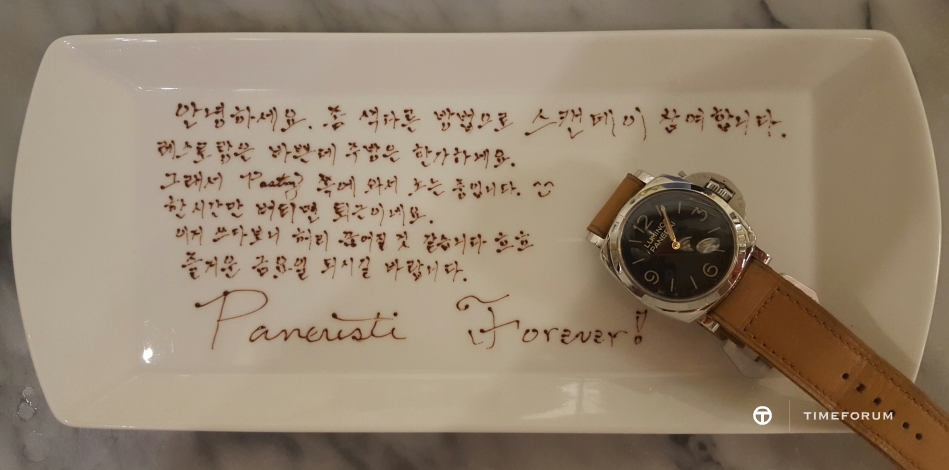 안녕하세요. 좀 색다른 방법으로 스캔데이 참여합니다.
레스토랑은 바쁜데 주방은 한가하네요.
그래서 Pastry 쪽에 와서 노는 중입니다.
한시간만 버티면 퇴근이네요.
이거 쓰다보니 허리 끊어질 것 같습니다 흐흐
즐거운 금요일 되시길 바랍니다.
Paneristi Forever!
12
3
6
9
LUMINOR
PANERAI
TIMEFORUM